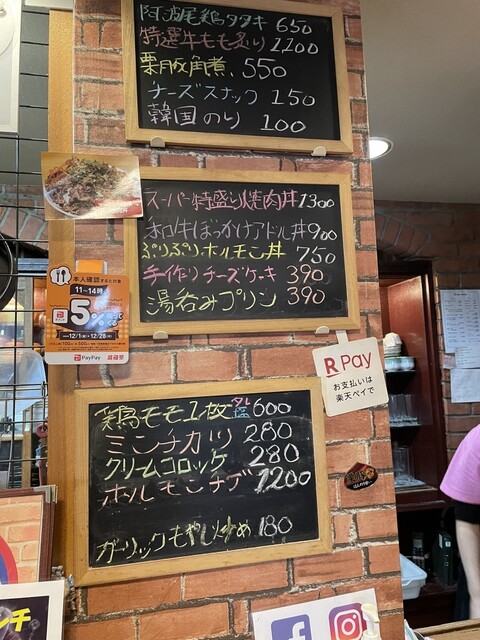 阿波尾鶏タタキ 650
特選牛もも炙り 1200
栗豚角煮、550
チーズスナック 150
韓国のり 100
スーパー特盛り焼肉丼 1300
ネコ牛ぱっかけアドル丼 900
ぷりぷりホルモン丼 750
手作りチーズケーキ 390
湯呑みプリン 390
本人確認
11～14時
5
12/1 12/28
PayPay
R Pay
お支払いは
楽天ペイで
鶏モモ1枚 タレ 塩 600
ミンチカツ 280
クリームコロッケ 280
ホルモンナベ 1200
ガーリックもやし炒め 180
ンチ